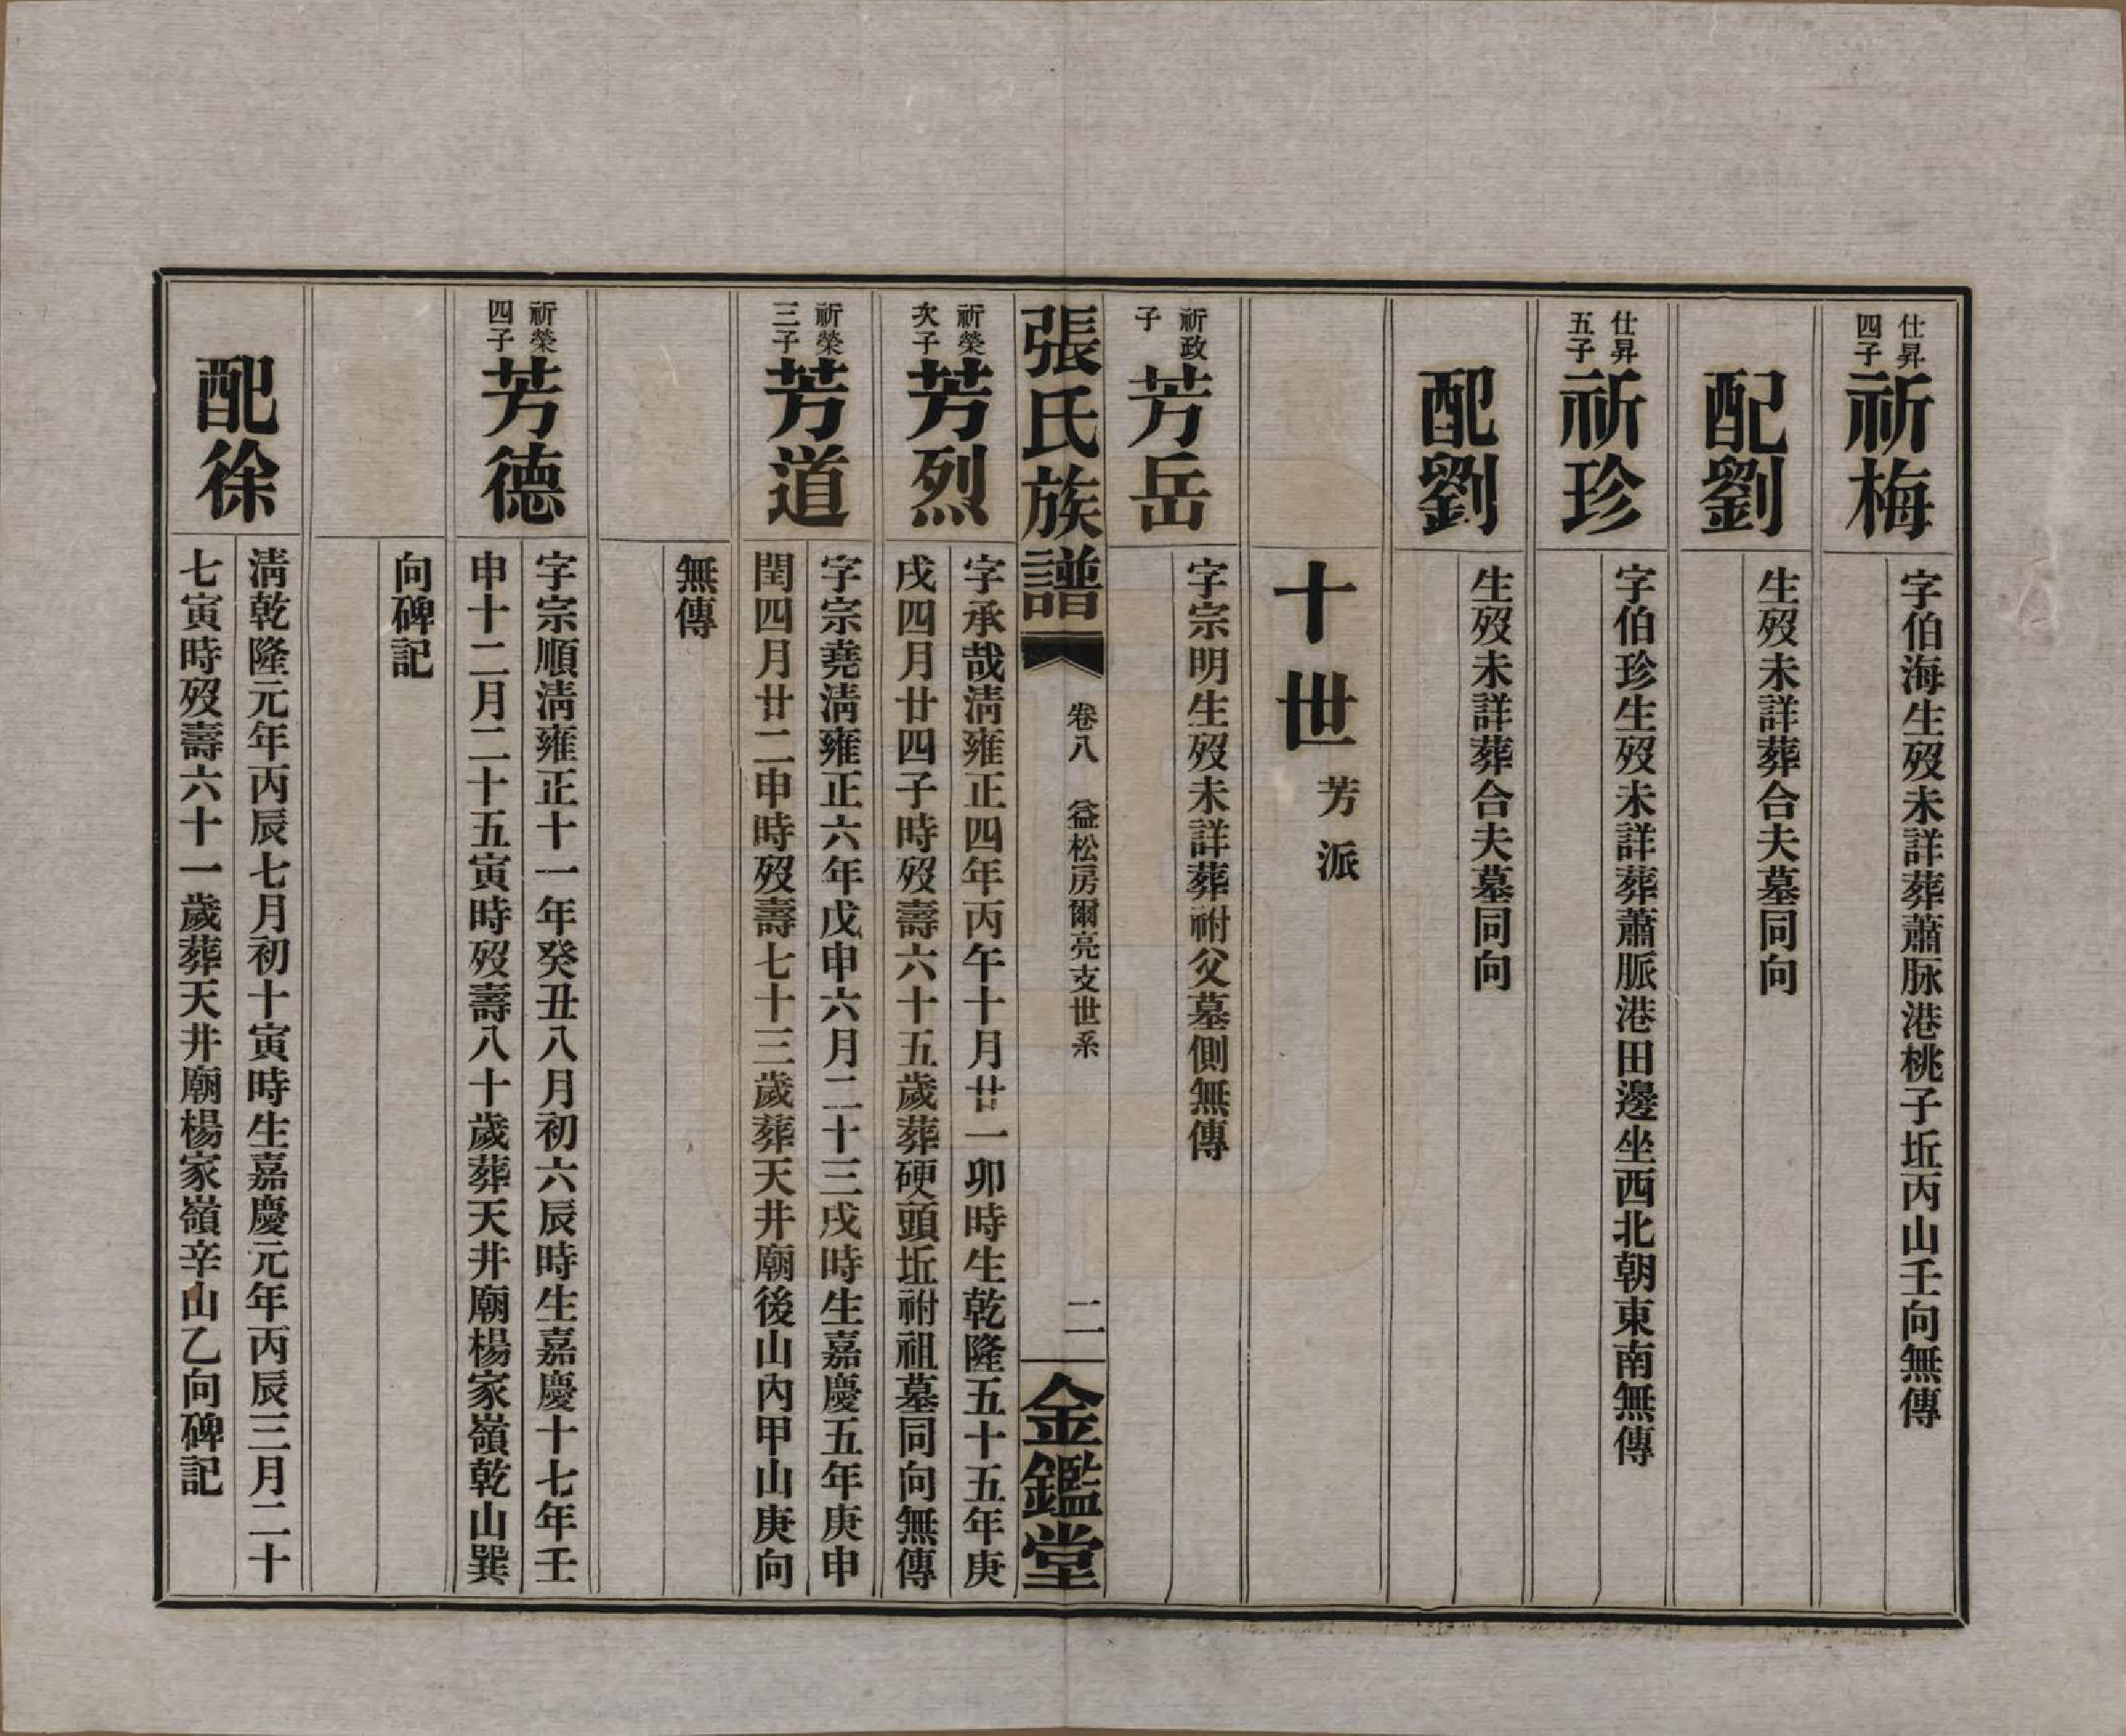 仕昇四子
祈梅
字伯海生歿未詳葬蕭脉港桃子坵丙山壬向無傳
配劉
生歿未詳葬合夫墓同向
仕昇五子
祈珍
字伯珍生歿未詳葬蕭脈港田邊坐西北朝東南無傳
配劉
生歿未詳葬合夫墓同向
十世 芳派
祈政子
芳岳
字宗明生歿未詳葬祔父墓側無傳
張氏族譜 卷八 益松房爾亮支世系 二 金鑑堂
祈榮次子
芳烈
字承哉淸雍正四年丙午十月廿一卯時生乾隆五十五年庚
戌四月廿四子時歿壽六十五歲葬硬頭坵祔祖墓同向無傳
祈榮三子
芳道
字宗堯淸雍正六年戊申六月二十三戌時生嘉慶五年庚申
閏四月廿二申時歿壽七十三歲葬天井廟後山內甲山庚向
無傳
祈榮四子
芳德
字宗順淸雍正十一年癸丑八月初六辰時生嘉慶十七年壬
申十二月二十五寅時歿壽八十歲葬天井廟楊家嶺乾山巽
向碑記
配徐
淸乾隆元年丙辰七月初十寅時生嘉慶元年丙辰三月二十
七寅時歿壽六十一歲葬天井廟楊家嶺辛山乙向碑記